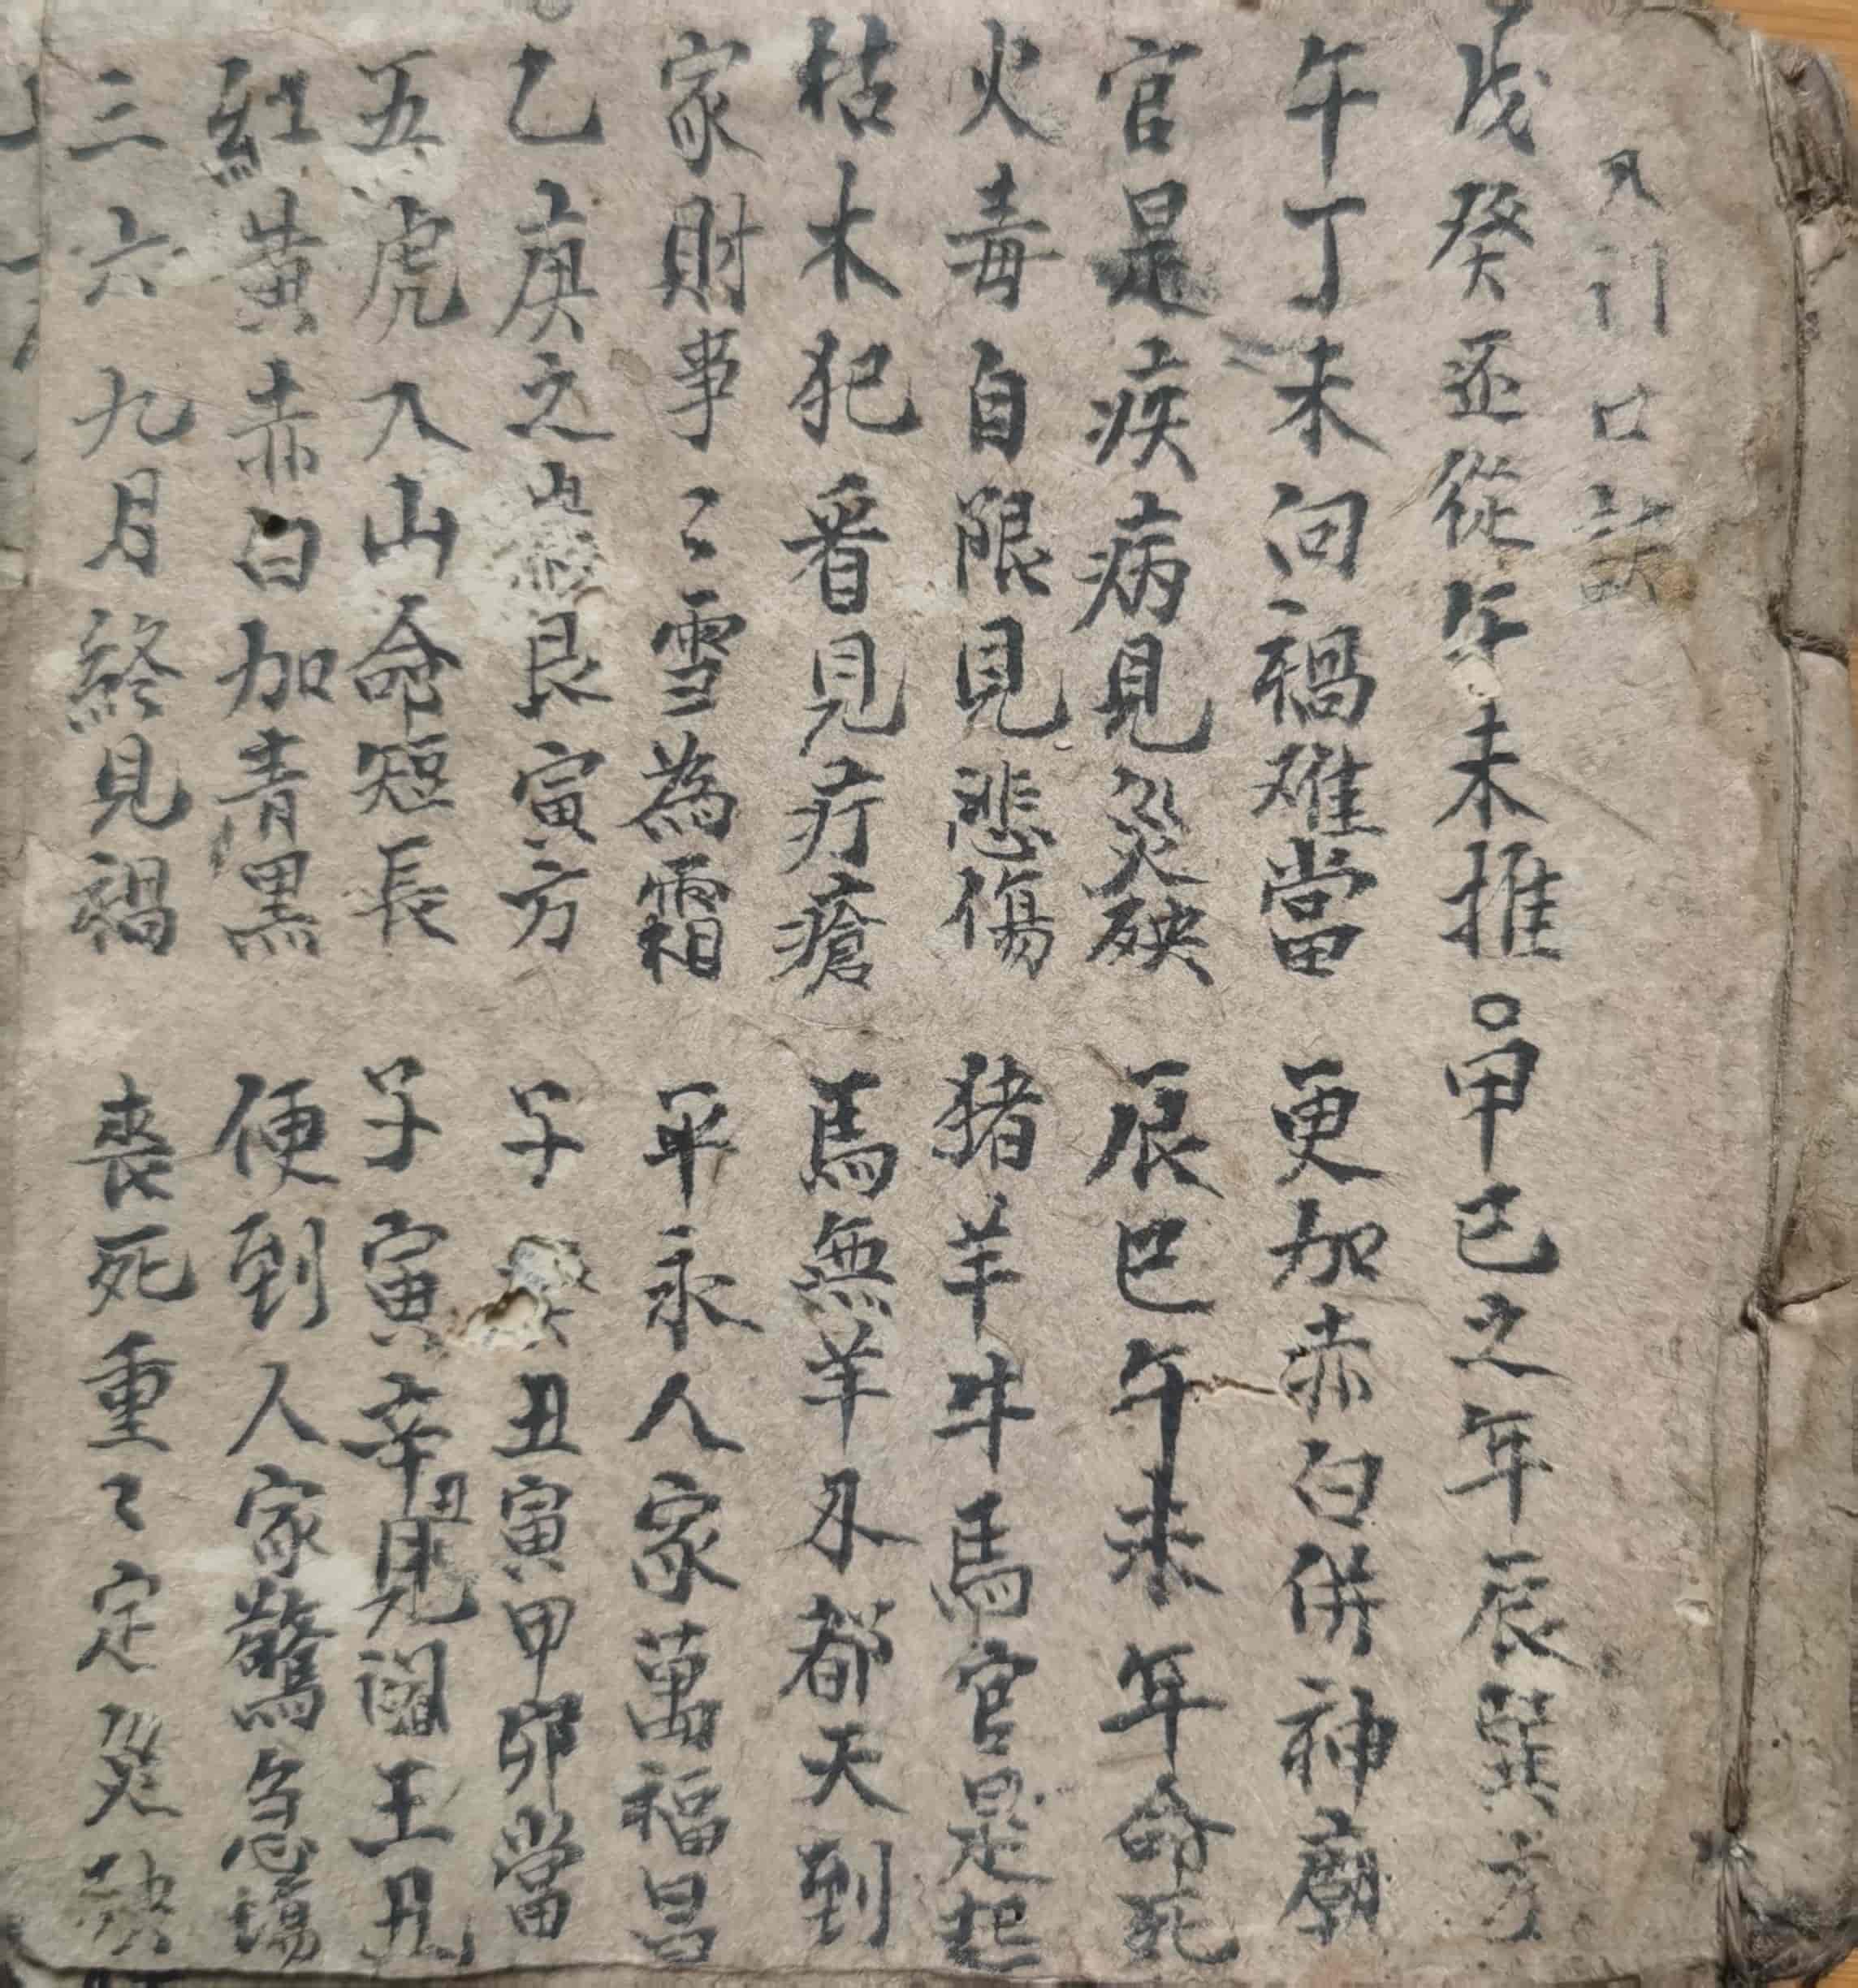 入 口訣
戊癸丕從年未推。甲巳之年辰巽方
午丁未向禍难當 更加赤白併神廟
官是疾病見災殃 辰巳午未年命死
火毒自限見悲傷 猪羊牛馬官是起
枯木犯着見疔瘡 馬無羊水都天到
家財事〻雪為霜 平永人家萬福昌
乙庚之 艮寅方 子癸丑寅甲卯當
五虎入山命短長 子寅辛丑見閻王丑
紅黃赤白加青黑 便到人家驚急場
三六九月終見禍 喪死重〻定災殃